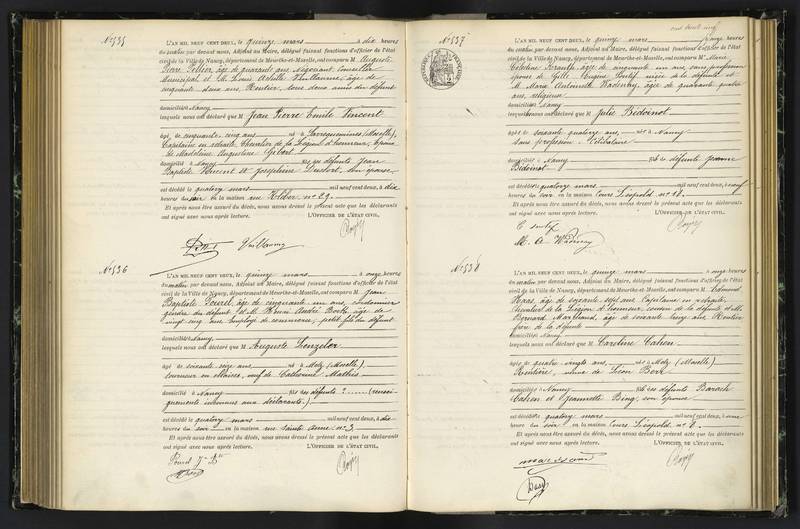 N° 535
L'AN MIL NEUF CENT DEUX, le quinze mars à dix heures
du matin par devant nous, Adjoint au Maire, délégué faisant fonctions d'officier de l'état
civil de la Ville de Nancy, département de Meurthe-et-Moselle, ont comparu M Auguste
Pierre âge de quarante ans Négociant Conseiller
Municipal et M. Louis Achille Vuillaume, âge de
cinquante deux ans, Rentier, tous deux amis du défunt
domiciliés Nancy
lesquels nous ont déclaré que M Jean Pierre Emile Vincent
âgé de cinquante-cinq ans né à Sarreguemines (Moselle),
Capitaine en retraite Chevalier de la Légion d'honneur, époux
de Madeleine Augustine Gibert
domicilié à Nancy fils des défunts Jean
Baptiste Vincent et Joséphine son épouse
est décédé le quatorze mars mil neuf cent deux, à dix
heures du soir en la maison rue n° 29.
Et après nous être assuré du décès, nous avons dressé le présent acte que les déclarants
ont signé avec nous après lecture. L'OFFICIER DE L'ÉTAT CIVIL,
Vuillaume
N° 536
L'AN MIL NEUF CENT DEUX, le quinze mars à onze heures
du matin par devant nous, Adjoint au Maire, délégué faisant fonctions d'officier de l'état
civil de la Ville de Nancy, département de Meurthe-et-Moselle, ont comparu M Jean
Baptiste âge de cinquante un ans, Cordonnier
gendre du défunt et M. Henri André âge de
vingt cinq ans employé de commerce, petit fils du défunt
domiciliés Nancy
lesquels nous ont déclaré que M Auguste Lenzeler
âgé de soixante seize ans né à Metz (Moselle)
tourneur en chaises, veuf de Catherine Mathis
domicilié à Nancy fils des défunts ? (rensei-
gnements inconnus aux déclarants.)
est décédé le quatorze mars mil neuf cent deux, à dix
heures du soir en la maison rue Sainte Anne n° 3.
Et après nous être assuré du décès, nous avons dressé le présent acte que les déclarants
ont signé avec nous après lecture. L'OFFICIER DE L'ÉTAT CIVIL,
cent trente neuf
N° 537
L'AN MIL NEUF CENT DEUX, le quinze mars à onze heures
du matin par devant nous, Adjoint au Maire, délégué faisant fonctions d'officier de l'état
civil de la Ville de Nancy, département de Meurthe-et-Moselle, ont comparu M Marie
âgée de cinquante un ans, sans profession
épouse de Gille Eugène nièce de la défunte et
M Marie Antoinette âgée de quarante quatre
ans, religieuse
domiciliées Nancy
lesquels nous ont déclaré que M Julie Bédoinot
âgée de soixante quatorze ans, née à Nancy
sans profession Célibataire
domiciliée à Nancy fille de défunte Jeanne
Bédoinot
est décédée quatorze mars mil neuf cent deux, à neuf
heures du soir en la maison Cours Léopold n° 18.
Et après nous être assuré du décès, nous avons dressé le présent acte que les déclarants
ont signé avec nous après lecture. L'OFFICIER DE L'ÉTAT CIVIL,
N° 538
L'AN MIL NEUF CENT DEUX, le quinze mars à onze heures
du matin par devant nous, Adjoint au Maire, délégué faisant fonctions d'officier de l'état
civil de la Ville de Nancy, département de Meurthe-et-Moselle, ont comparu M Edmond
Haas, âge de soixante sept ans Capitaine en retraite,
Chevalier de la Légion d'honneur, cousin de la défunte et M.
Bernard âge de soixante treize ans Rentier
de la défunte
domiciliés Nancy
lesquels nous ont déclaré que M Caroline Cahen
âgée de quatre vingts ans née à Metz (Moselle)
Rentière, veuve de Léon
domiciliée à Nancy fille des défunts Baroch
Cahen et Jeannette Bing, son épouse
est décédée quatorze mars mil neuf cent deux, à onze
heures du soir en la maison Cours Léopold, n° 8.
Et après nous être assuré du décès, nous avons dressé le présent acte que les déclarants
ont signé avec nous après lecture. L'OFFICIER DE L'ÉTAT CIVIL,
Haas